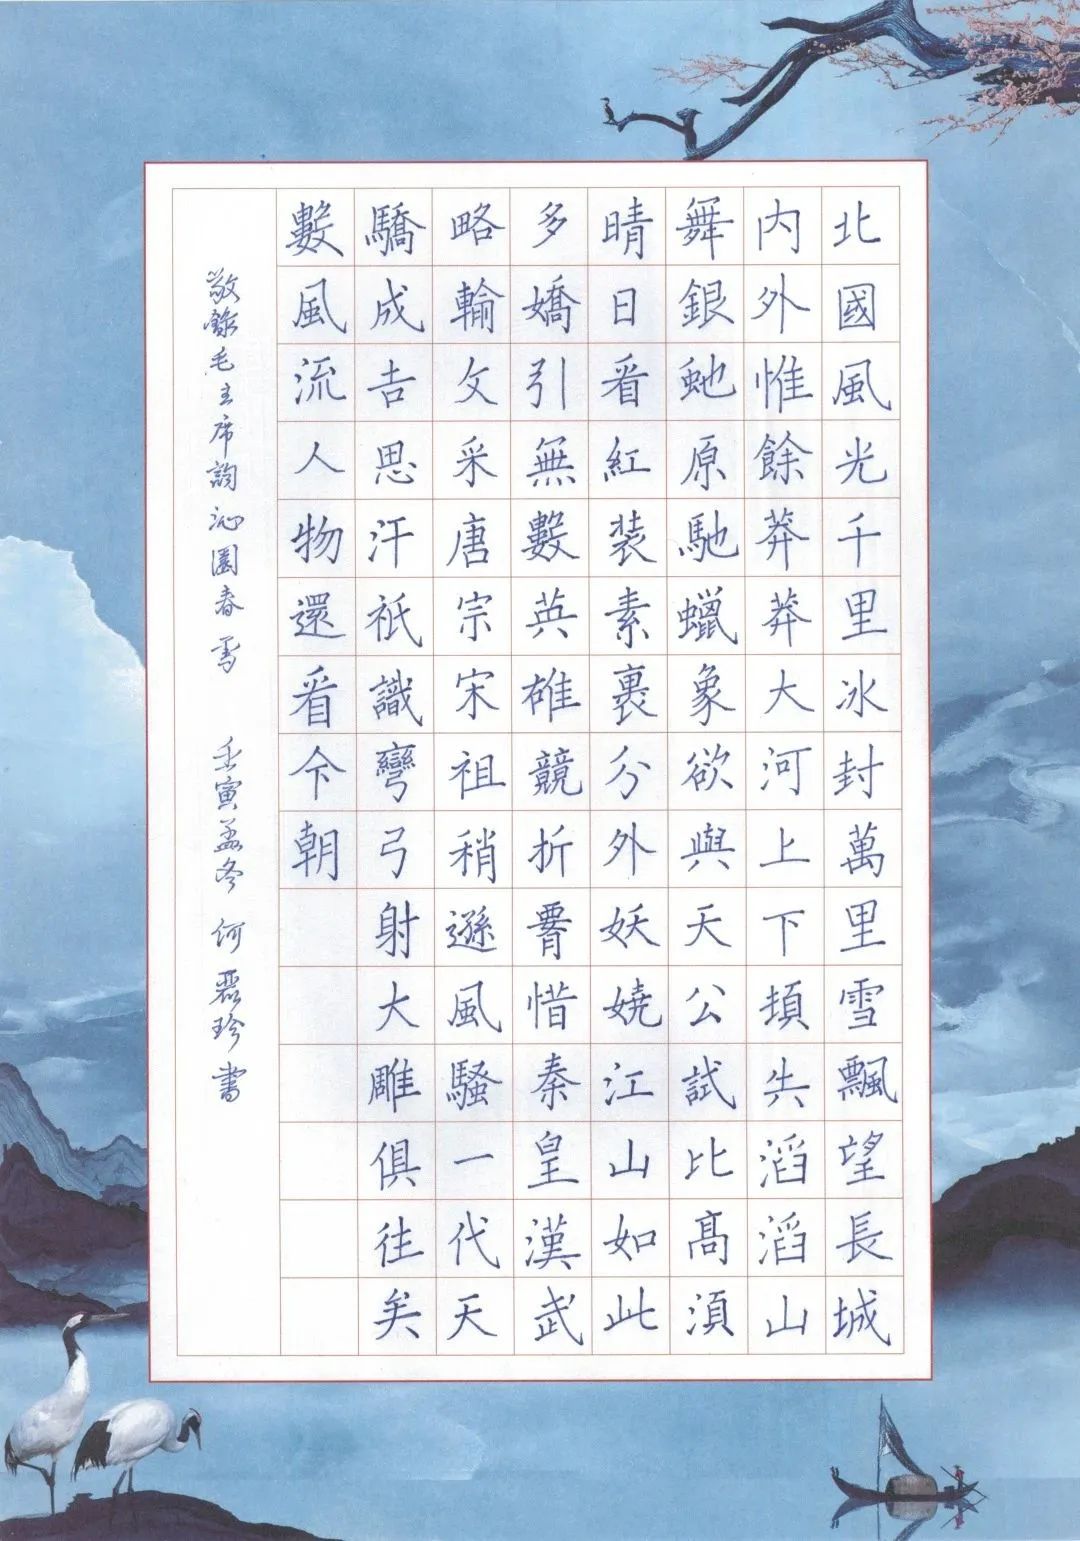 北國風光千里冰封萬里雪飄望長城
内外惟餘莽莽大河上下頓失滔滔山
舞銀虵原馳蠟象欲與天公試比髙湏
晴日看紅装素裹分外妖嬈江山如此
多嬌引無數英雄競折腰惜秦皇漢武
略輸文采唐宗宋祖稍遜風騷一代天
驕成吉思汗祇識彎弓射大雕俱往矣
數風流人物還看今朝
敬錄毛主席詞沁園春雪 壬寅孟冬 何麗珍書